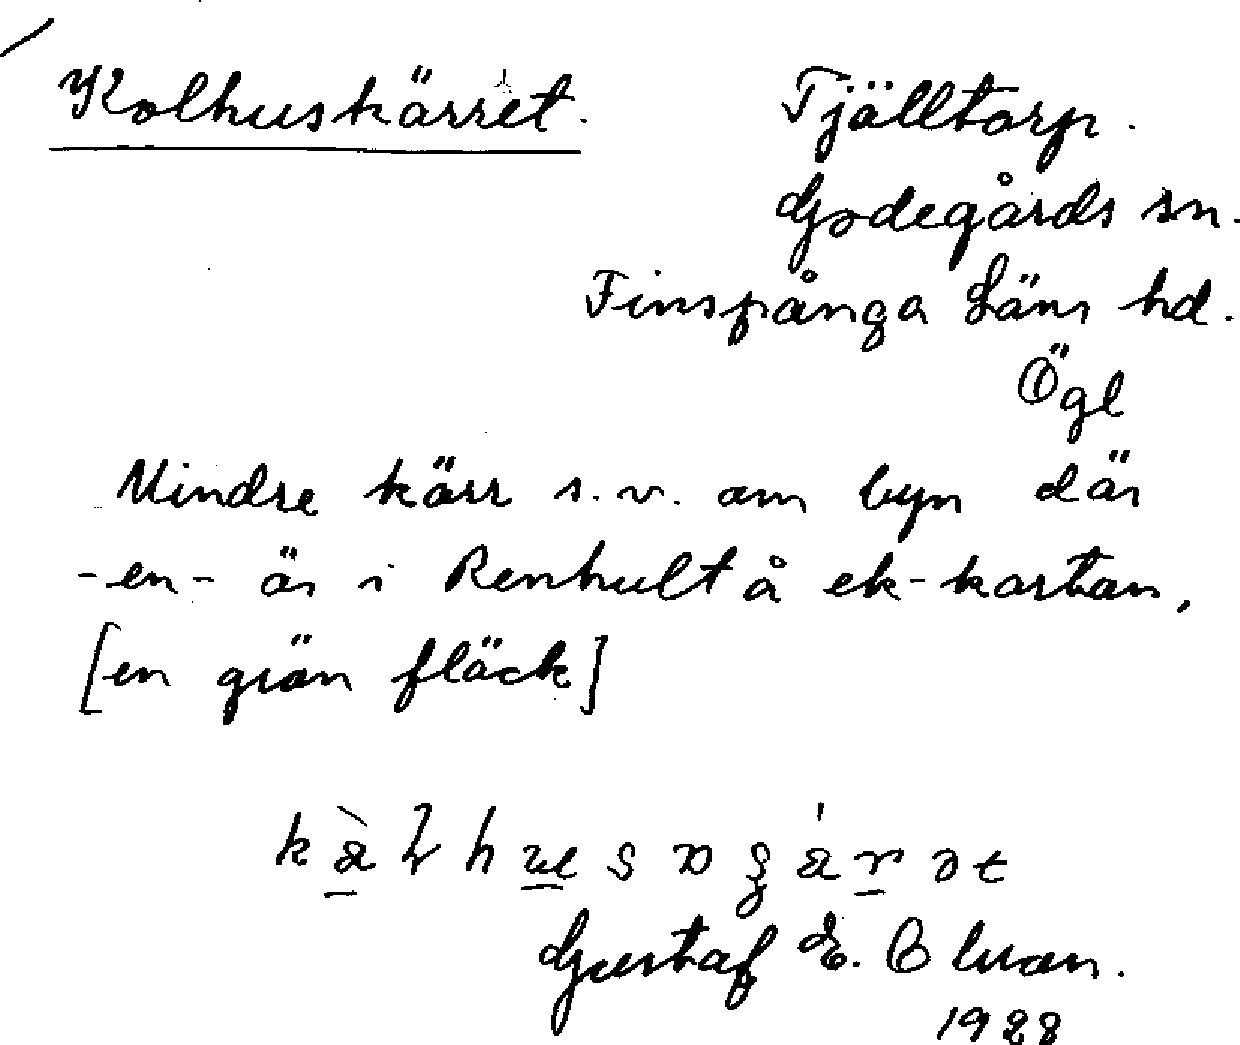 Kolhuskärret.
Tjälltorp.
Godegårds sn.
Finspånga Läns hd.
Ögl
Mindre kärr s.v. om byn där
-en- är i Renhult å ek-kartan,
[en grön fläck]
Gustaf E.
1928